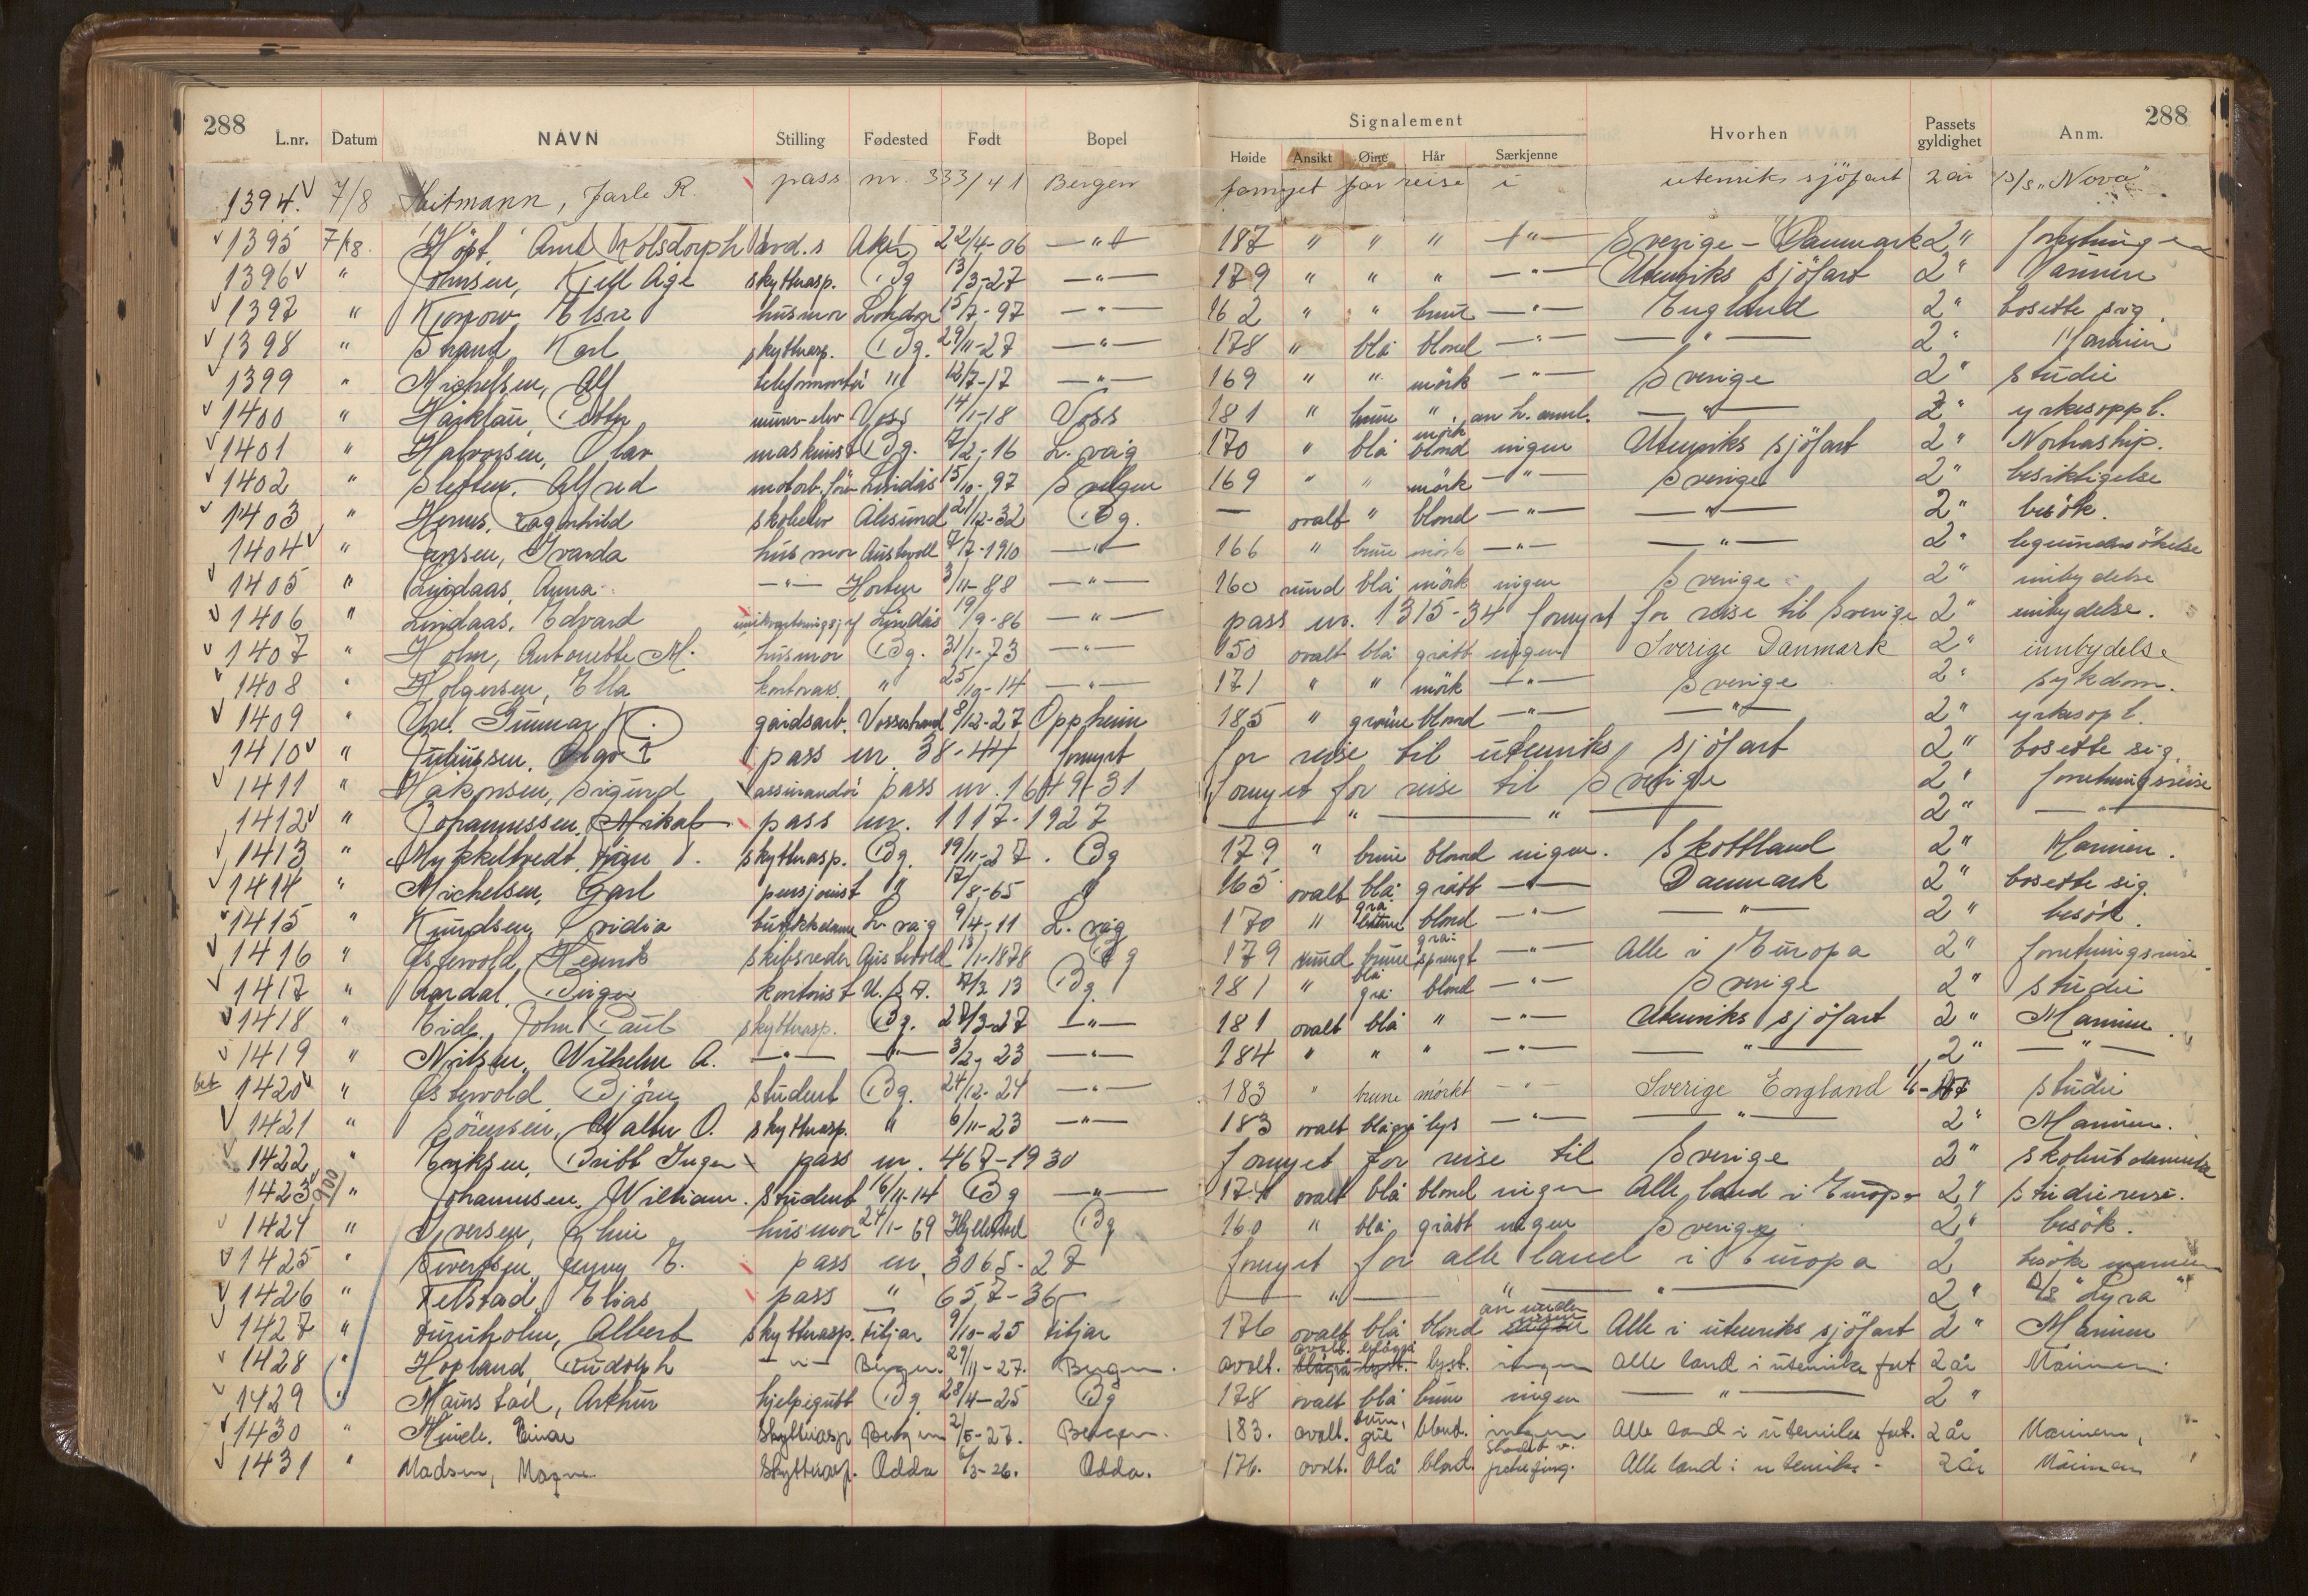 288 L.nr. Datum NAVN Stilling Fødested Født Bopel Signalement Høide Ansikt Øine Hår Særkjenne Hvorhen Passets gyldighet Anm. 288
1394. 7/8 Heitmann, Jarle R. pass nr. 333/41 Bergen fornyet for reise i utenriks sjöfart 2 år S/S „Nova"
1395 7/8. Höpt, Arne Rolsdorph avd.s Aker 22/4-06 —"— 187 " " " —"— Sverige - Danmark 2 "
1396 " Johnsen, Kjell Åge skytterasp. Bg 13/3-27 —"— 179 " " " —"— Utenriks sjöfart 2 " Marinen
1397 " husmor London 15/7-97 —"— 162 " " brunt —"— England 2 " bosette sig.
1398 " Strand, Karl skytterasp. Bg. 29/11-27 —"— 178 " blå blond —"— —"— 2 " Marinen
1399 " Michelsen, Alf telefonmontör " 12/7-17 —"— 169 " " mörk —"— Sverige 2 " studie
1400 " murer-elev Voss 14/1-18 Voss 181 " brune " —"— 2 " yrkesoppl.
1401 " Halvorsen, Olav maskinist Bg. 7/2-16 L. våg 170 " blå mörk blond ingen Utenriks sjöfart 2 " Nortraship.
1402 " Sletten, Alfred motorb.förer Lindås 15/10-97 169 " " mörk —"— Sverige 2 " besiktigelse
1403 " Ragnhild skoleelev Ålesund 21/12-32 Bg. — ovalt " blond —"— —"— 2 " besök.
1404 " Jansen, Ivarda husmor Austevoll 7/7-1910 —"— 166 " brune mörk —"— —"— 2 " legeundersökelse
1405 " Lindaas, Anna —"— Horten 3/11-88 —"— 160 rund blå mörk ingen Sverige 2 " innbydelse
1406 " Lindaas, Edvard Lindås 19/9-86 —"— pass nr. 1315-34 fornyet for reise til Sverige 2 " innbydelse.
1407 " Holm, Antonette M. husmor Bg. 31/1-73 —"— 150 ovalt blå grått ingen Sverige Danmark 2 " innbydelse
1408 " Holgersen, Ella kontoras. " 25/10-14 —"— 171 " " mörk —"— Sverige 2 " sykdom.
1409 " Gunnar K. gårdsarb. Vossestrand 8/12-27 Oppheim 185 " gröne blond —"— —"— 2 " yrkesopl.
1410 " Juliussen, Olga pass nr. 38-44 fornyet for reise til utenriks sjöfart 2 " bosette sig.
1411 " Håkonsen, Sigurd assurandör pass nr. 1649/31 fornyet for reise til Sverige 2 " forretningsreise
1412 " Johannessen, Mikal pass nr. 1117-1927 —"— —"— 2 " —"—
1413 " Mykkeltvedt, skytterasp. Bg. 19/11-27. Bg 179 " brune blond ingen. Skottland 2 " Marinen.
1414 " Michelsen, Carl pensjonist " 17/8-65 " 165 ovalt blå grått —"— Danmark 2 " bosette sig.
1415 " Knudsen, Ovidia butikkdame L. våg 9/4-11 L. våg 170 " grå brune blond —"— —"— 2 " besök.
1416 " Östervold, Henrik skibsreder Austevold 13/1-1878 Bg 179 rund brune grå sprengt —"— Alle i Europa 2 " forretningsreise
1417 " Aardal, Birger kontorist U.S.A. 7/2 13 Bg. 181 " blå grå blond —"— Sverige 2 " studie
1418 " Eide, John Paul skytterasp. Bg. 27/3-27 —"— 181 ovalt blå " —"— Utenriks sjöfart 2 " Marinen.
1419 " Nilsen, Wilhelm A. —"— —"— 3/2-23 —"— 184 " " " —"— —"— 2 " —"—
1420 " Östervold, Björn student Bg. 24/12-24 —"— 183 " brune mörkt —"— Sverige England studie
1421 " Sörensen, Walter O. skytterasp. " 6/11-23 —"— 183 ovalt blågrå lys —"— —"— 2 " Marinen.
1422 " Eriksen, Britt Inger pass nr. 467-1930 fornyet for reise til Sverige 2 " skoleutdannelse
1423 900 " Johannesen, William. student 16/11-14 Bg —"— 174 ovalt blå blond ingen Alle land i Europa 2 " studiereise.
1424 " Iversen, husmor 24/1-69 Hyllestad Bg 160 " blå grått ingen Sverige 2 " besök.
1425 " Sivertsen, Jenny E. pass nr. 3065-27 fornyet for alle land i Europa 2 besöke mannen
1426 " Telstad, Elias pass " 657-36 —"— —"— 2 " S/S "Lyra"
1427 " Albert skytterasp. Fitjar 9/10-25 Fitjar 176 ovalt blå blond Alle i utenriks sjöfart 2 " Marinen
1428 " Hopland, Rudolph —"— Bergen. 29/11-27. Bergen. ovalt. ovalt. blågrå lyst. ingen Alle land i utenriks fart 2 år Marinen.
1429 " Arthur hjelpegutt Bg 28/4-25 Bg 178 ovalt blå brun ingen —"— 2 "
1430 " Einar Skytterasp Bergen 2/5-27. Bergen. 183. ovalt. blond. ingen Alle land i utenriks fart. 2 år Marinen,
1431 " Madsen, Magne Skytterasp. Odda 6/3-26. Odda. 176. ovalt. blå blond. Alle land i utenriks - 2 år Marinen